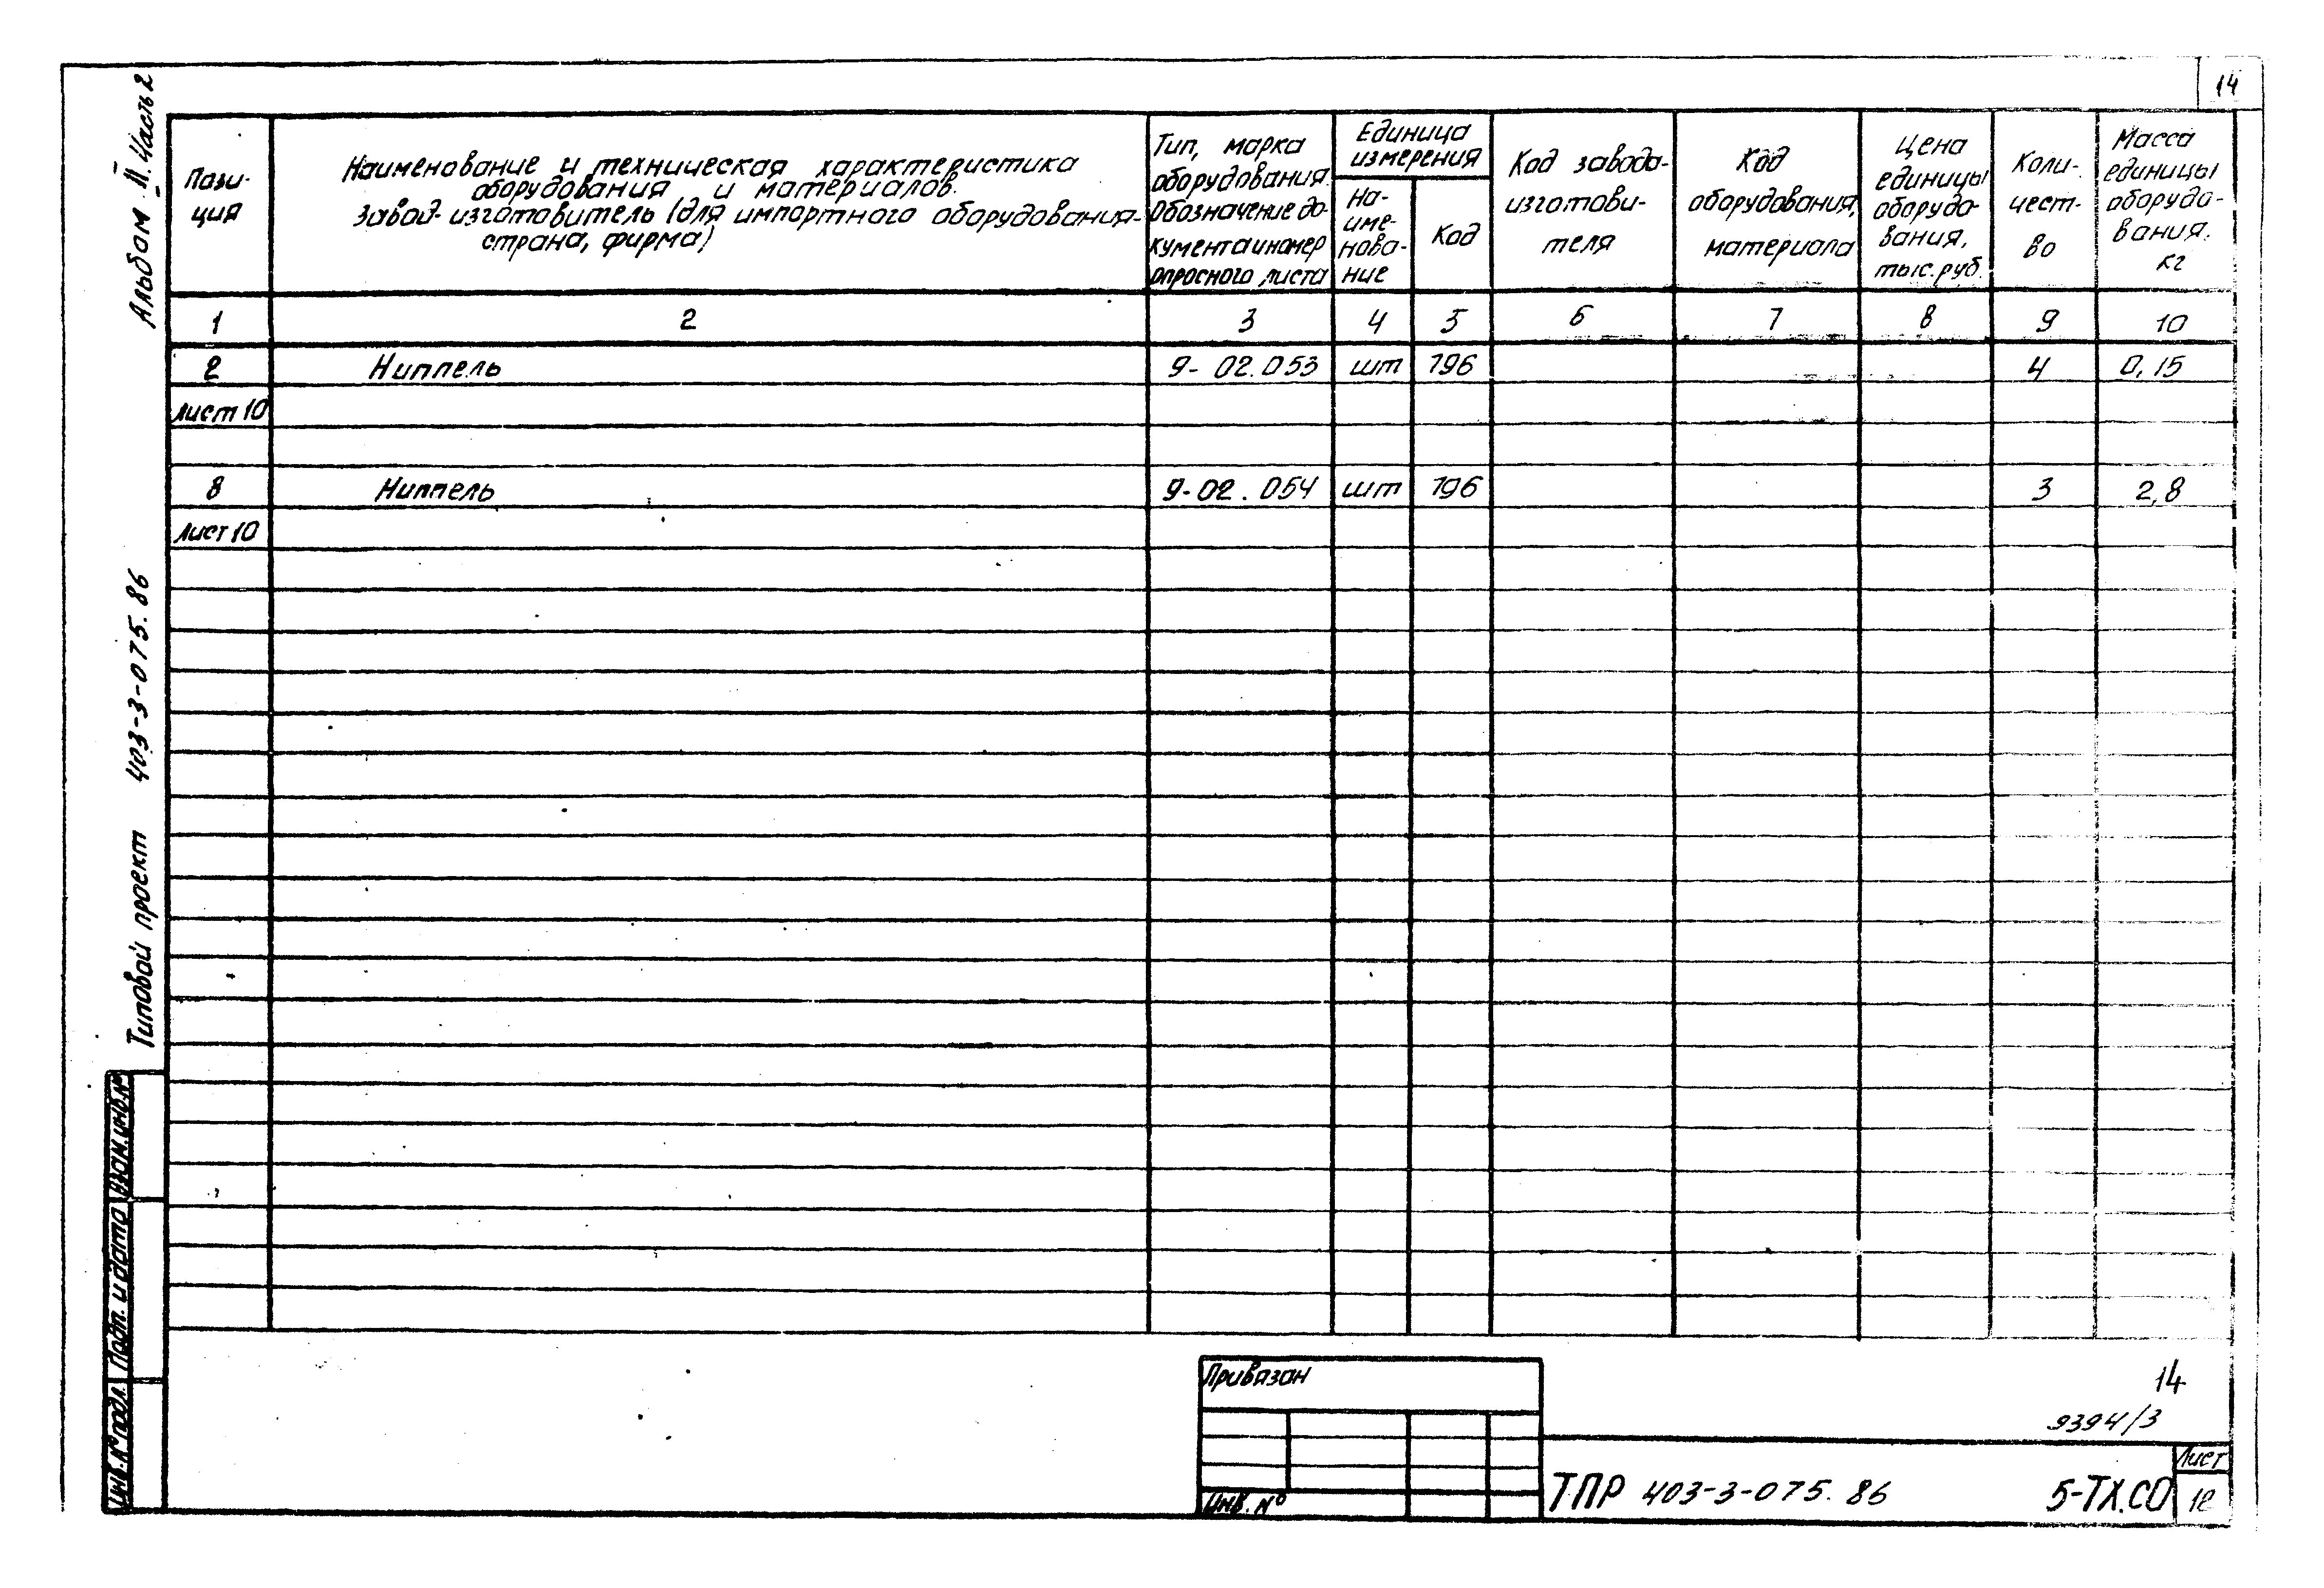 14
Альбом II. Часть 2
Типовой проект 403-3-075.86
Пози-
ция
Наименование и техническая характеристика
оборудования и материалов.
Завод-изготовитель (для импортного оборудования-
страна, фирма)
Тип, марка
оборудования.
Обозначение до-
кумента и номер
опросного листа
Единица
измерения
На-
име-
нова-
ние
Код
Код завода-
изготови-
теля
Код
оборудования,
материала
Цена
единицы
оборудо-
вания,
тыс. руб.
Коли-
чест-
во
Масса
единицы
оборудо-
вания.
кг
1 2 3 4 5 6 7 8 9 10
2 Ниппель 9-02.053 шт 796 4 0,15
Лист 10
8 Ниппель 9-02.054 шт 796 3 2,8
Лист 10
Взам. инв. №
Подп. и дата
Инв. № подл.
Привязан
Инв. №
14
9394/3
ТПР 403-3-075.86 5-ТХ.СО
Лист
12